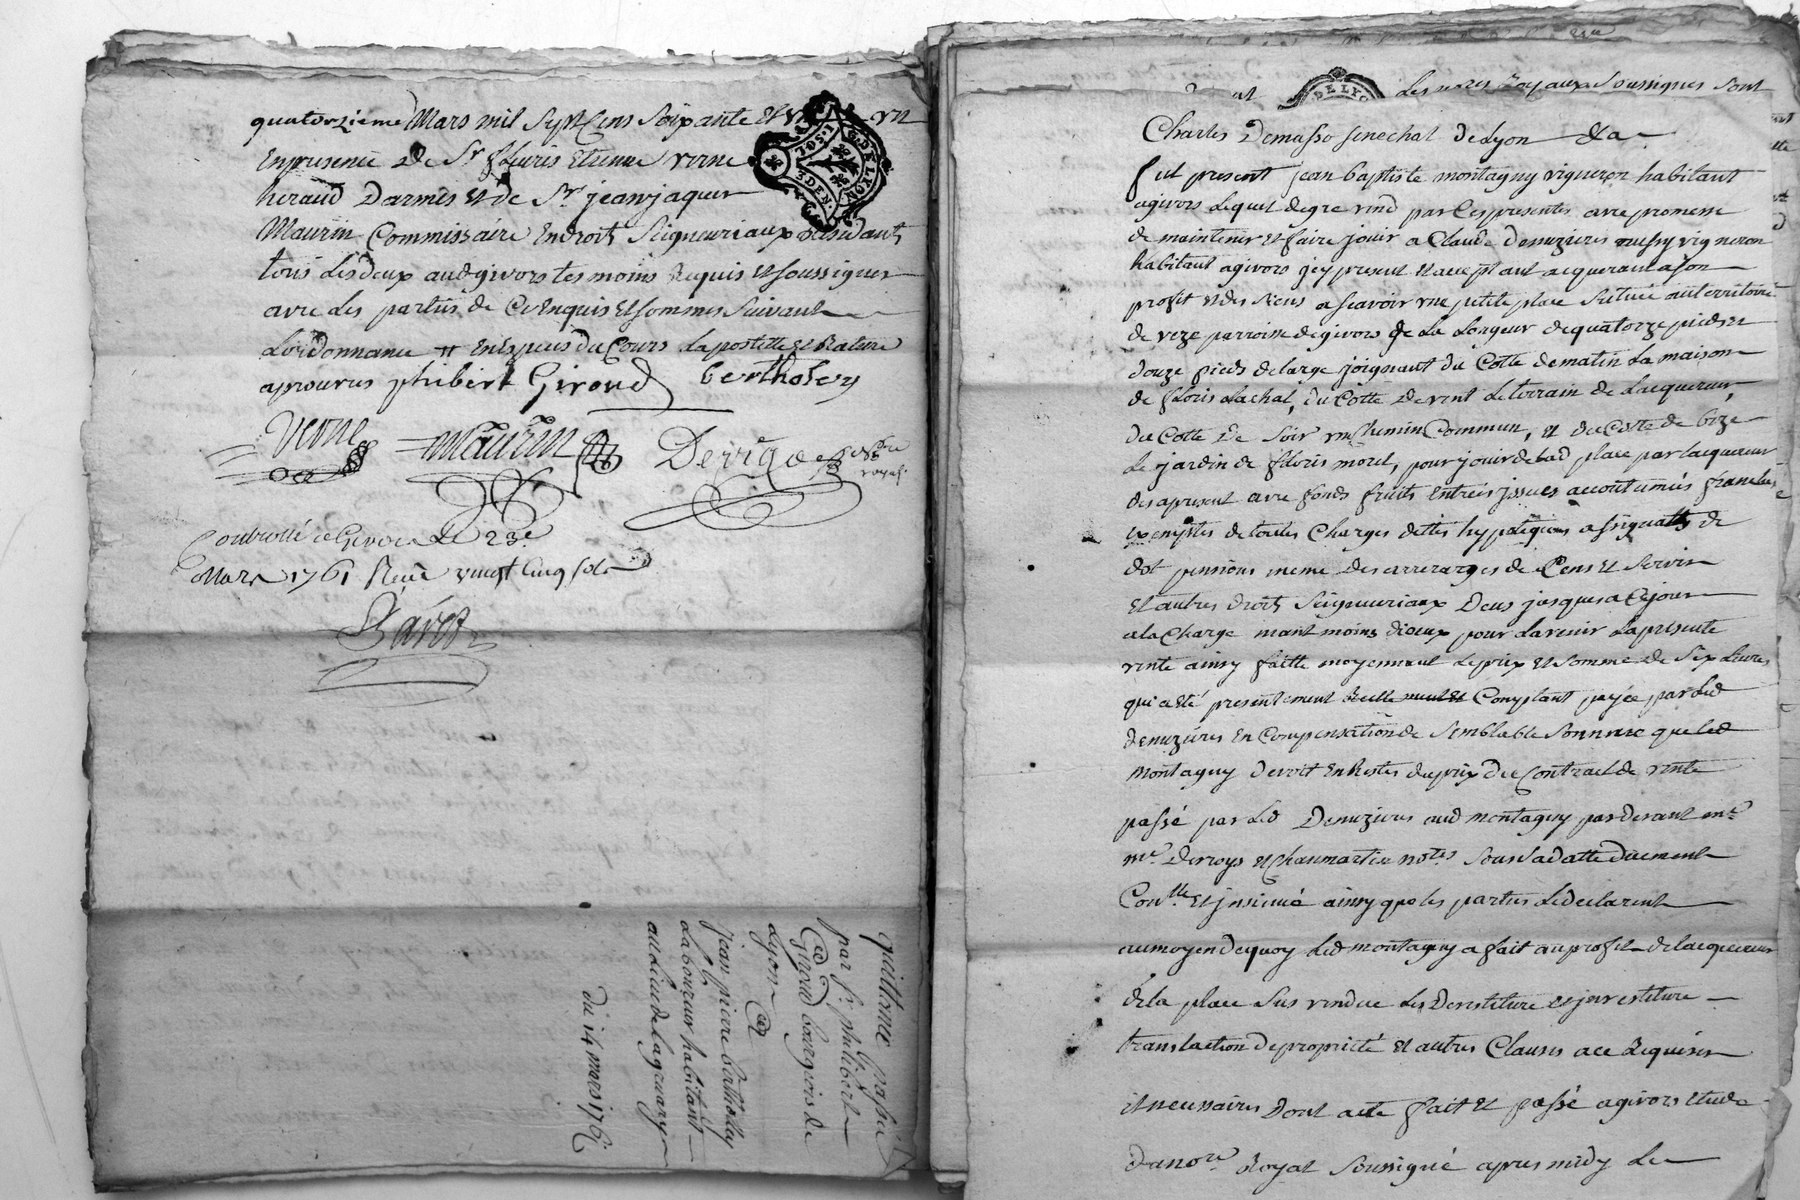 quatorzieme Mars mil Sept Cens Soixante et un
En presence de Sr fleuris Etienne verne
heraud Darmes et de Sr jean jaques
Maurin Commissaire En droits Seigneuriaux residants
tous les deux aud givors tesmoins requis et soussignes
avec les parties de Ce Enquis et sommes Suivant
Lordonnance En Espeus du Cours Lapostille et Rature
aprouvés philibert Giroud berthosey
Verne Maurin Devigo
Controllé a Givors Le 23e
Mars 1761 Recu vingt Cinq sols
quittance passée
par Sr philibert
Giroud bourgeois de
Lyon a
jean pierre bertholley
Laboureur habitant
au lieu de lagrange
du 14 mars 1761
13 DEN.
DE LYO
Les notes Royaux Soussignes sont
Charles Demasso senechal de Lyon &a
fut present jean baptiste montagny vigneron habitant
a givors Lequel de gre vend par Ces presentes avec promesse
de maintenir et faire jouir a Claude Denuzieres aussy vigneron
habitant a givors jcy present et acceptant acquerant a son
profit et des siens a scavoir une petite place Scituée au territoire
de veze parroisse de givors de La Longeur de quatorze pieds et
douze pieds de large joignant du Cotte de matin La maison
de floris Lachal, du Cotte de vent Le terrain de Lacquereur,
du Cotte de Soir un Chemin Commun, et du Cotte de bize
Le jardin de floris morel, pour jouir de lad place par Lacquereur
des apresent avec fonds fruits entrées jssues accoutumés franches
exemptes de toutes Charges dettes hypoteques assignats de
dot pensions meme des arrerages de Cens et Servis
et autres droits Seigneuriaux Deus jusques a Ce jour
a la Charge neant moins diceux pour Lavenir La presente
vente ainsy faitte moyennant Le prix et Somme de Six Livres
qui a eté presentement Comptant payée par Led
Denuzieres En Compensation de Semblable Somme que led
Montagny devoit En Restes du prix du Contract de vente
passé par Led Denuzieres aud montagny pardevant me
me Derroys et Chaumartin notes Sous Sa datte duement
Conlle et jnsinué ainsy que les parties Le declarent
au moyen de quoy Led montagny a fait au profit de lacquereur
de la place Sus vendue Les Devestiture et jnvestiture
translaction de proprieté et autres Clauses a ce Requises
et necessaires Dont acte fait et passé a givors etude
dunore Royal Soussigné apres midy Le